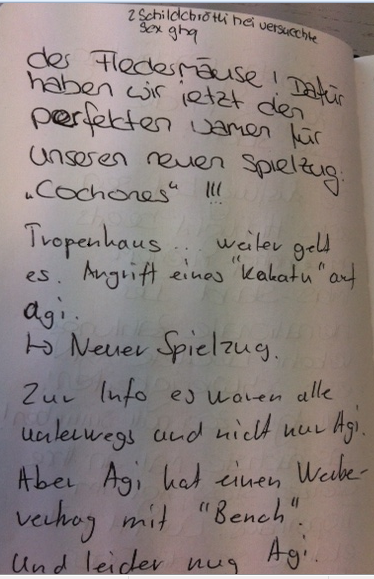 2 Schildchrötli bei versuechte
Sex gha
der Fledermäuse! Dafür
haben wir jetzt den
perfekten Namen für
unseren neuen Spielzug:
„Cochones“ !!!
Tropenhaus ... weiter geht
es. Angriff eines "Kakatu" auf
Agi.
↳ Neuer Spielzug.
Zur Info es waren alle
unterwegs und nicht nur Agi.
Aber Agi hat einen Werbe-
vertrag mit "Bench".
Und leider nug Agi.